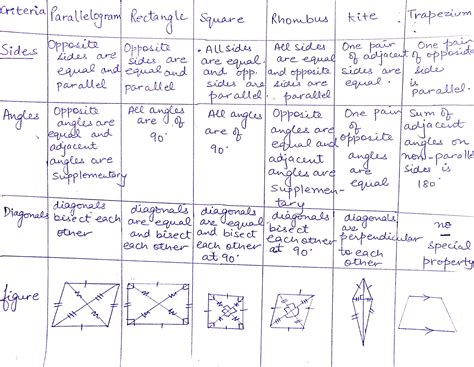 Criteria Parallelogram Rectangle Square Rhombus Kite Trapezium
Sides
Opposite
sides are
equal and
parallel
Opposite
sides are
equal and
parallel
. All sides
are equal
and opp.
sides are
parallel.
All sides
are equal
and opposite
sides are
parallel
One pair
of adjacent
sides are
equal.
One pair
of opposide
side
is
parallel.
Angles
Opposite
angles are
equal and
adjacent
angles are
supplementary
All angles
are of
90°
All angles
are of
90°
Opposite
angles are
equal and
adjacent
angles are
supplemen-
tary
One pair
of
opposite
angles
are
equal
Sum of
adjacent
angles on
non-parallel
sides is
180°
Diagonals
diagonals
bisect each
other
diagonals
are equal
and bisect
each other
diagonals
are equal
and bisect
each other
at 90°
diagonals
bisect
each other
at 90°
diagonals
are
perpendicular
to each
other
no
special
property
figure